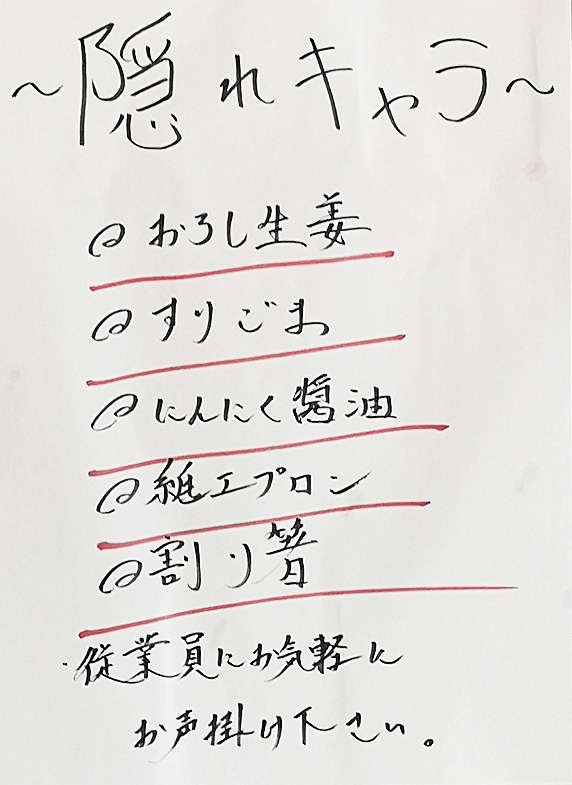 ～隠れキャラ～
おろし生姜
すりごま
にんにく醤油
紙エプロン
割り箸
・従業員にお気軽に
お声掛け下さい。